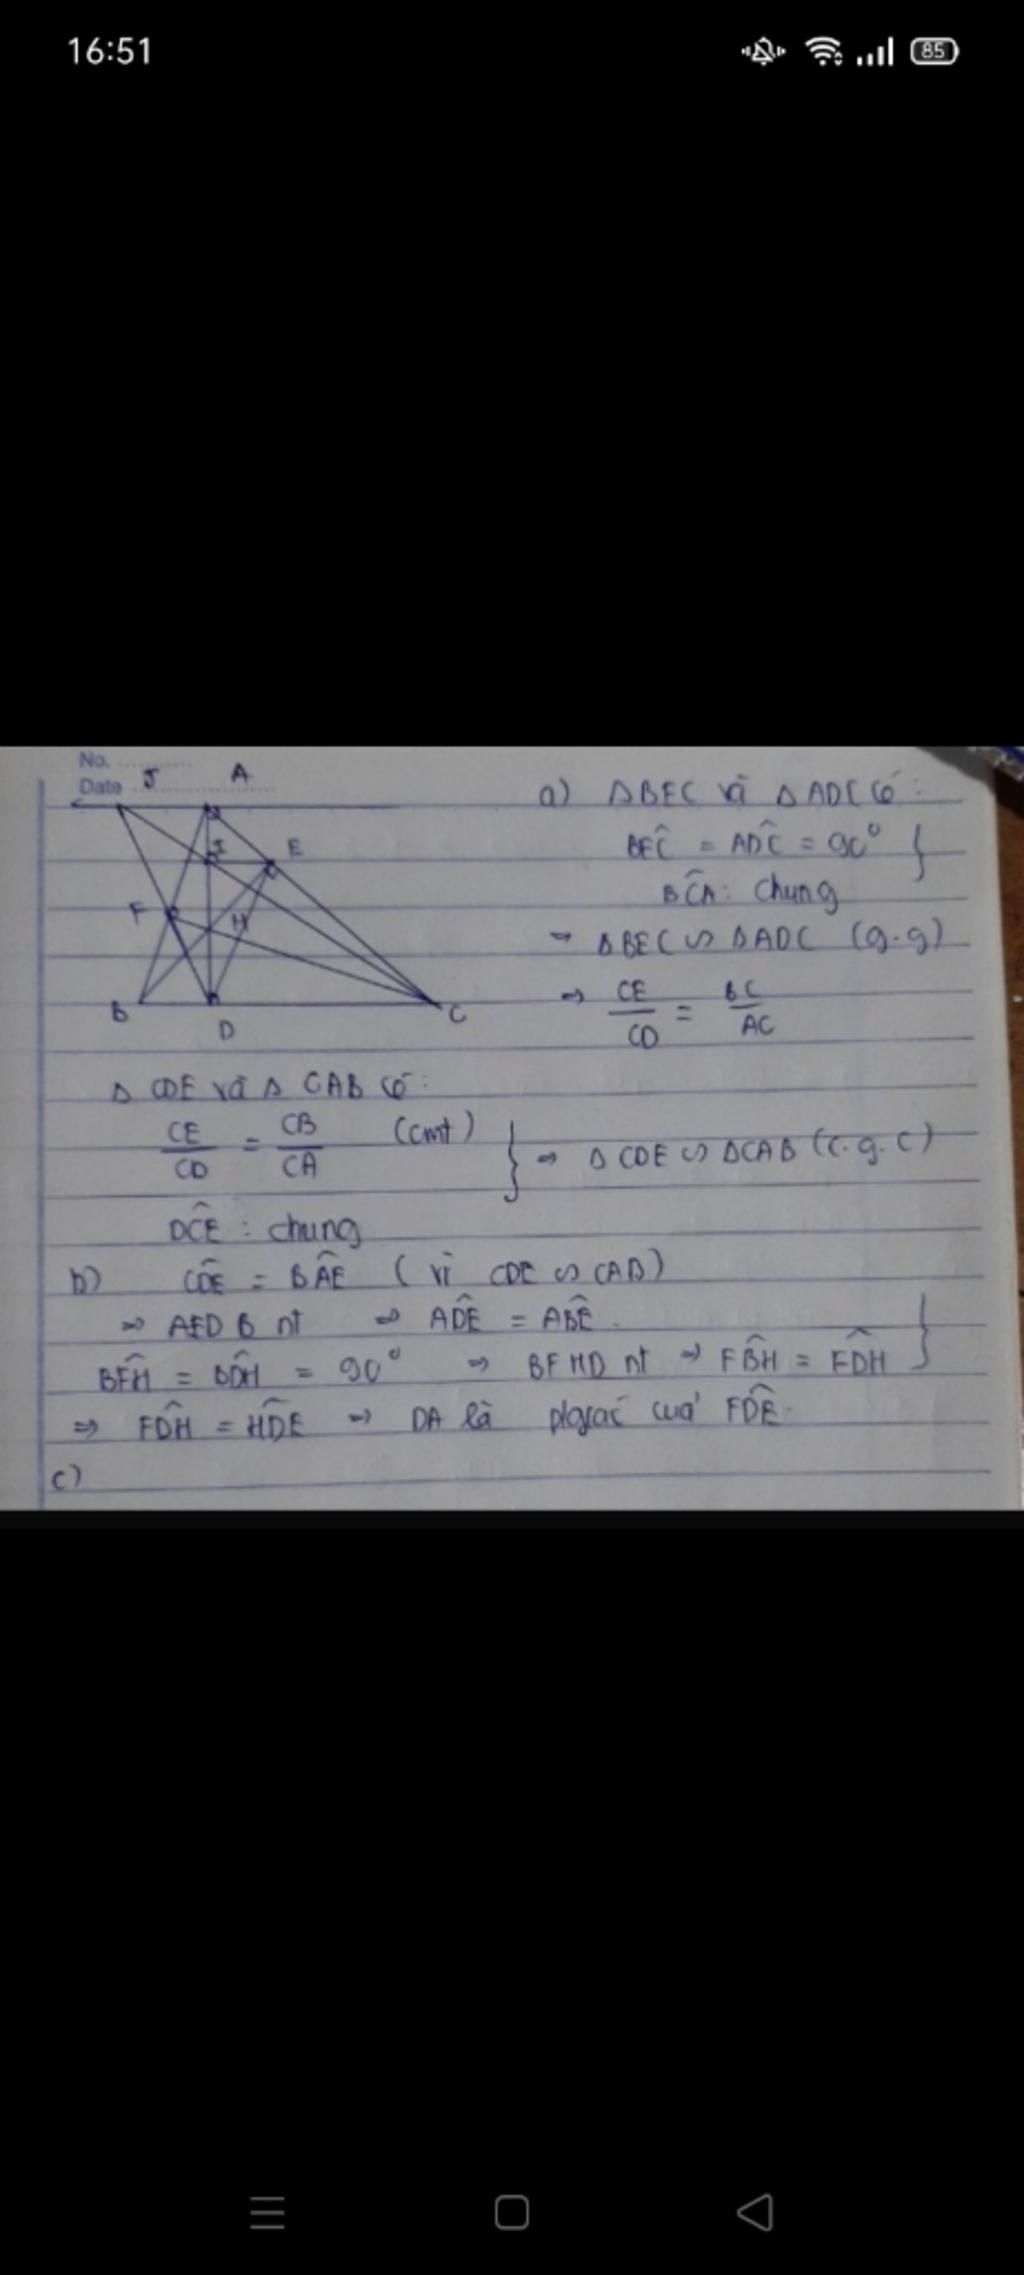 16:51
85
No.
Date
J A
a) ΔBEC và ΔADC có:
I E
BEĈ = ADĈ = 90°
BĈA: chung
F H
⇒ ΔBEC ∽ ΔADC (g.g)
B D C
⇒ CE/CD = BC/AC
Δ CDE và Δ CAB có:
CE/CD = CB/CA (cmt) } ⇒ Δ CDE ∽ ΔCAB (c.g.c)
DĈE : chung
b) CD̂E = BÂE ( vì CDE ∽ CAB)
⇒ AEDB nt ⇒ AD̂E = AB̂E.
BF̂H = BD̂H = 90° ⇒ BFHD nt ⇒ FB̂H = FD̂H }
⇒ FD̂H = HD̂E ⇒ DA là pgiác của FD̂E.
c)